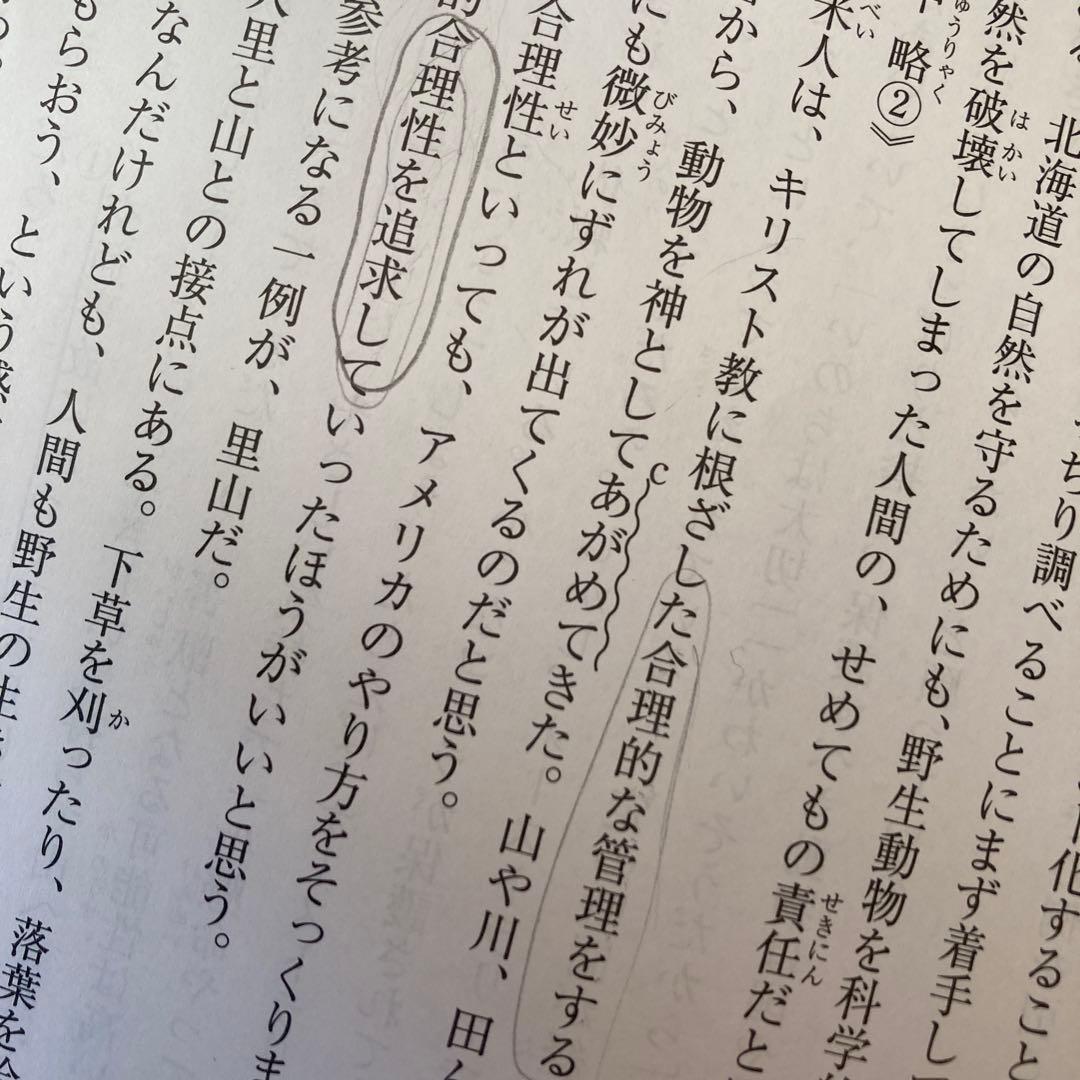 ちり調べることにまず着手し
北海道の自然を守るためにも、野生動物を科学
然を破壊してしまった人間の、せめてもの責任だと
略②》
米人は、キリスト教に根ざした合理的な管理をする
から、動物を神としてあがめてきた。山や川、田ん
にも微妙にずれが出てくるのだと思う。
合理性といっても、アメリカのやり方をそっくりま
的合理性を追求していったほうがいいと思う。
参考になる一例が、里山だ。
人里と山との接点にある。下草を刈ったり、落葉を
なんだけれども、人間も野生の生
もらおう、という